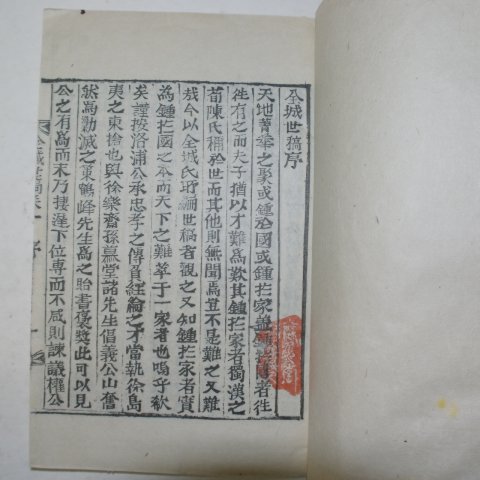 全城世稿序
天地菁華之聚或鍾於國或鍾於家盖鍾者往
往有之而夫子猶以才難爲歎其鍾於家者獨漢之
荀陳氏稱於世而其他則無聞焉豈不是難之又難
哉今以全城氏所編世稿者觀之又知鍾於家者實
爲鍾於國之本而天下之難萃于一家者也嗚乎欽
矣謹按洛浦公承忠孝之傳負經綸之才當執徐島
夷之東搶也與徐樂齋孫慕堂諸先生倡義公山奮
然爲勦滅之策鶴峰先生爲之貽書褒奬此可以見
公之有爲而未乃捿遲下位專而不咸則諫議權公
全城世稿 序 一